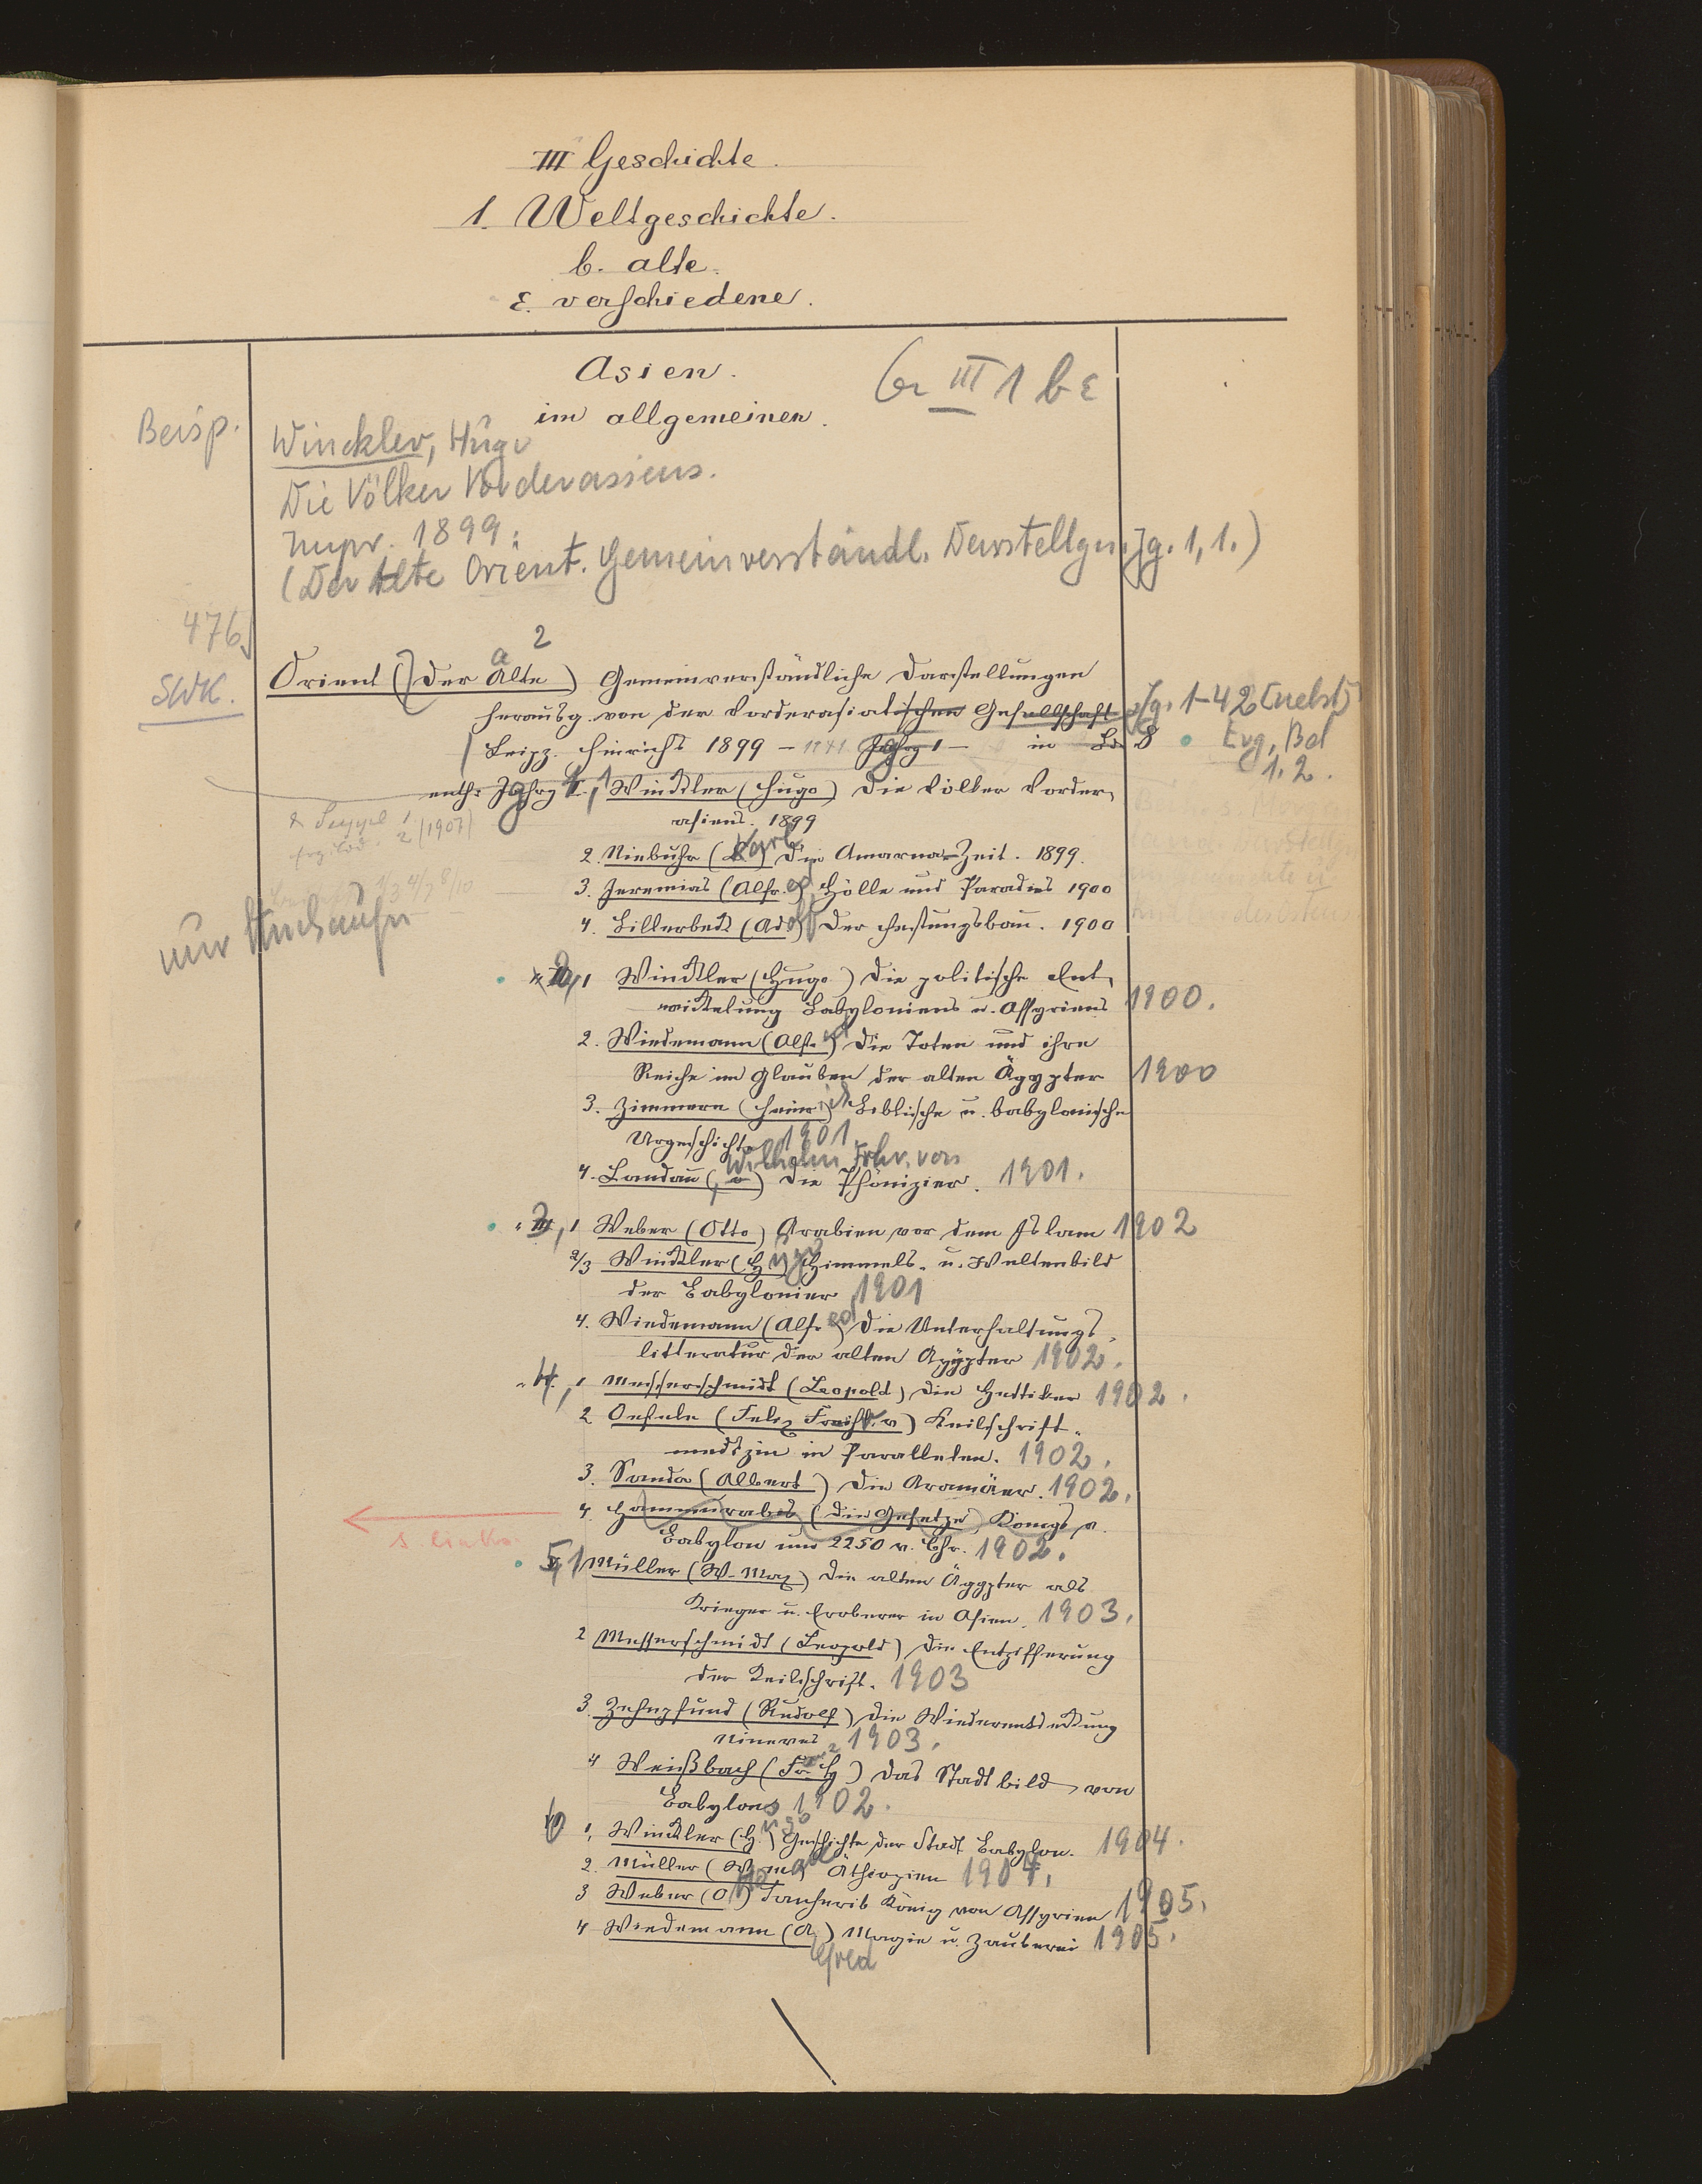 III Geschichte.
1. Weltgeschichte.
b. alte.
ε. verschiedene.
Asien.
Gr III 1 b ε
im allgemeinen.
Beisp.
Winckler, Hugo
Die Völker Vorderasiens.
1899.
(Der Alte Orient. Gemeinverständl. Darstellgn. Jg. 1,1.)
476
SWK.
a 2
Orient (Der Alte) Gemeinverständliche Darstellungen
herausg. von der Vorderasiatischen Gesellschaft
Jg. 1-42 [nebst]
Leipz. Hinrichs 1899 – 1941 Jahrg 1 – in 8
Erg. Bd
1. 2.
enth: Jahrg 1,1 Winckler (Hugo) Die Völker Vorder-
asiens. 1899
2 (1907)
2. Niebuhr (Karl) Die Amarna-Zeit. 1899.
3. Jeremias (Alfred) Hölle und Paradies 1900
4. Billerbeck (Adolf) Der Festungsbau. 1900
nur
2, 1 Winckler (Hugo) Die politische Ent-
wickelung Babyloniens u. Assyriens 1900.
2. Wiedemann (Alfred) Die Toten und ihre
Reiche im Glauben der alten Ägypter 1900
3. Zimmern (Heinrich) Biblische u. babylonische
Urgeschichte 1901
4. Landau (Wilhelm Frhr. von) Die Phönizier. 1901.
3, 1 Weber (Otto) Arabien vor dem Islam 1902
2/3 Winckler (Hugo) Himmels- u. Weltenbild
der Babylonier 1901
4. Wiedemann (Alfred) Die Unterhaltungs-
litteratur der alten Ägypter 1902.
4, 1 Messerschmidt (Leopold) Die Hettiter 1902.
2 Oefele (Felix Freih. v) Keilschrift-
medizin in Parallelen. 1902.
3. Sanda (Albert) Die Aramäer. 1902.
4. Hammurabis (Die Gesetze) Königs v.
s. links
Babylon um 2250 v. Chr. 1902.
5, 1 Müller (W. Max) Die alten Ägypter als
Krieger u. Eroberer in Asien. 1903.
2 Messerschmidt (Leopold) Die Entzifferung
der Keilschrift. 1903
3. Zehnpfund (Rudolf) Die Wiederentdeckung
Nineves 1903.
4 Weißbach (Franz H) Das Stadtbild von
Babylon 1902.
6 1. Winckler (Hugo) Geschichte der Stadt Babylon. 1904.
2. Müller (W. Max) Äthiopien 1904.
3 Weber (Otto) Sanherib König von Assyrien 1905.
4 Wiedemann (Alfred) Magie u. Zauberei 1905.